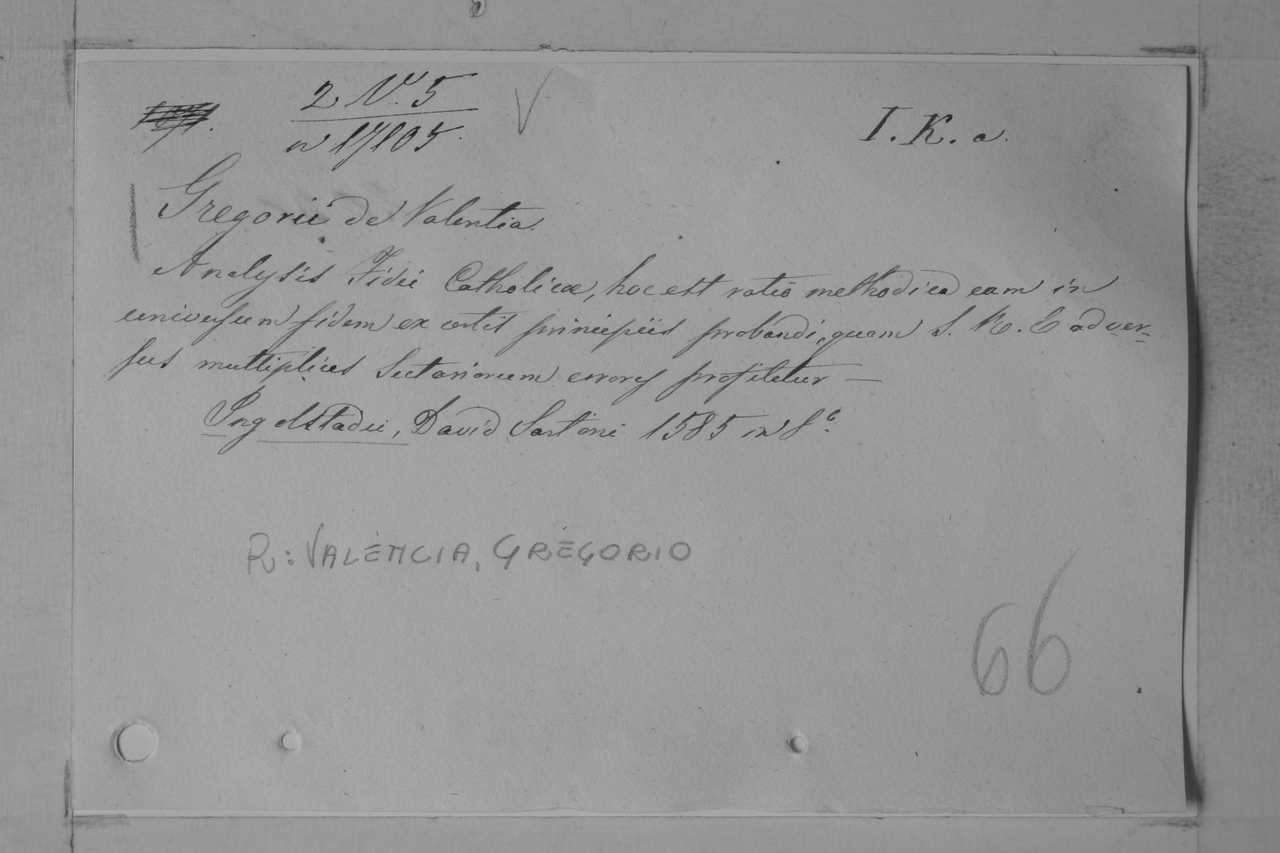 2 Nr. 5
17105
I. K. a.
Gregorii de Valentia
Analysis Fidei Catholicae, hoc est ratio methodica eam in
universum fidem ex certis principiis probandi, quam S. R. E adver-
sus multiplices Sectariorum errores profitetur —
Ingolstadii, David Sartori 1585 in
R: VALENCIA, GREGORIO
66